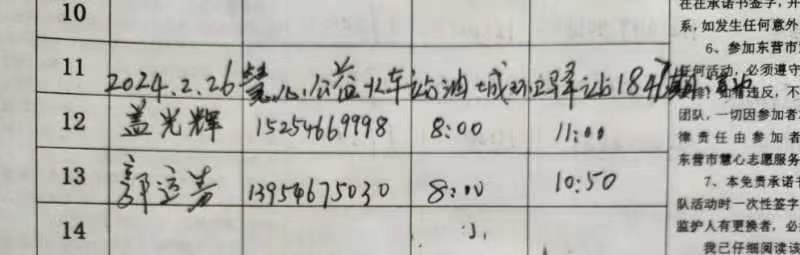 10
11 2024.2.26 慧心公益火车站油城环卫驿站184期
12 盖光辉 15254669998 8:00 11:00
13 郭运芳 13954675030 8:00 10:50
14
在在承诺书签字，并
系,如发生任何意外
6、参加东营市
任何活动，必须遵守
违反，不
团队，一切因参加者
律责任由参加者
东营市慧心志愿服务
7、本免责承诺书
队活动时一次性签字
监护人有更换者，必
我已仔细阅读该